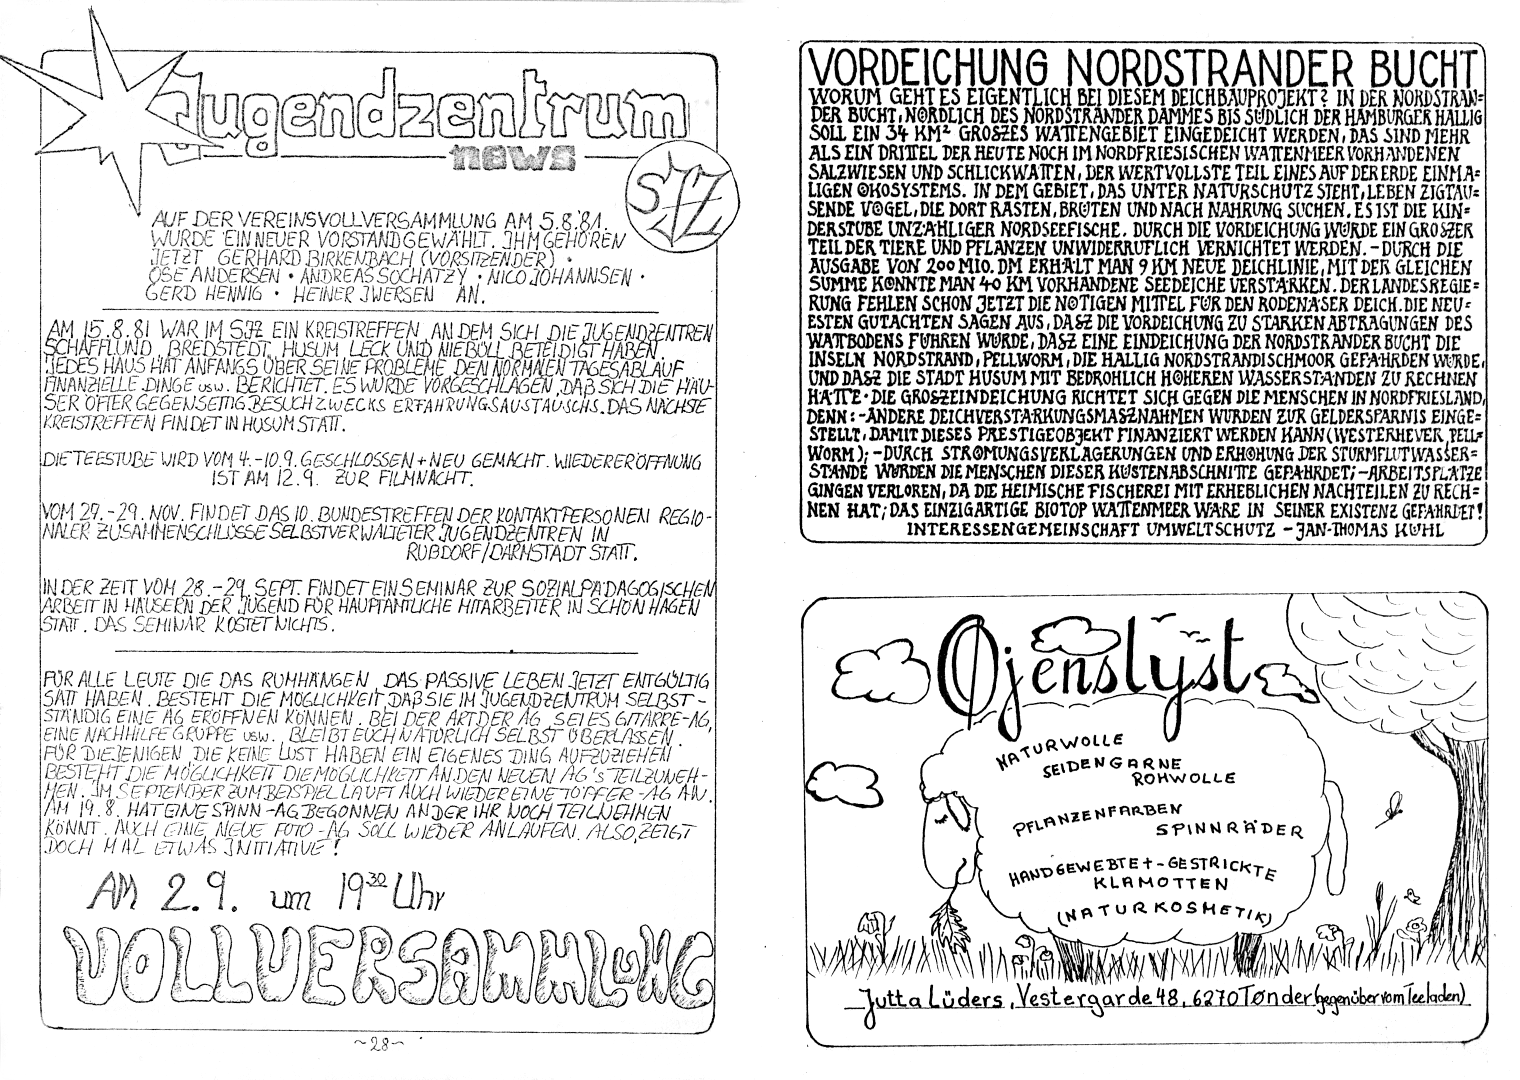 Jugendzentrum
news
SJZ
AUF DER VEREINSVOLLVERSAMMLUNG AM 5.8.'81.
WURDE EIN NEUER VORSTAND GEWÄHLT. IHM GEHÖREN
JETZT GERHARD BIRKENBACH (VORSITZENDER) •
OSE ANDERSEN • ANDREAS SOCHATZY • NICO JOHANNSEN •
GERD HENNIG • HEINER IWERSEN AN.
AM 15.8.81 WAR IM SJZ EIN KREISTREFFEN, AN DEM SICH DIE JUGENDZENTREN
SCHAFFLUND, BREDSTEDT, HUSUM LECK UND NIEBÜLL BETEIDIGT HABEN.
JEDES HAUS HAT ANFANGS ÜBER SEINE PROBLEME, DEN NORMALEN TAGESABLAUF
FINANZIELLE DINGE usw. BERICHTET. ES WURDE VORGESCHLAGEN, DAß SICH DIE HÄU-
SER ÖFTER GEGENSEITIG BESUCH ZWECKS ERFAHRUNGSAUSTAUSCHS. DAS NÄCHSTE
KREISTREFFEN FINDET IN HUSUM STATT.
DIE TEESTUBE WIRD VOM 4.-10.9. GESCHLOSSEN + NEU GEMACHT. WIEDERERÖFFNUNG
IST AM 12.9. ZUR FILMNACHT.
VOM 27.-29. NOV. FINDET DAS 10. BUNDESTREFFEN DER KONTAKTPERSONEN REGIO-
NALER ZUSAMMENSCHLÜSSE SELBSTVERWALTETER JUGENDZENTREN IN
RUßDORF/DARNSTADT STATT.
IN DER ZEIT VOM 28.-29. SEPT. FINDET EIN SEMINAR ZUR SOZIALPÄDAGOGISCHEN
ARBEIT IN HÄUSERN DER JUGEND FÜR HAUPTAMTLICHE MITARBEITER IN SCHÖNHAGEN
STATT. DAS SEMINAR KOSTET NICHTS.
FÜR ALLE LEUTE DIE DAS RUMHÄNGEN, DAS PASSIVE LEBEN JETZT ENTGÜLTIG
SATT HABEN, BESTEHT DIE MÖGLICHKEIT, DAß SIE IM JUGENDZENTRUM SELBST-
STÄNDIG EINE AG ERÖFFNEN KÖNNEN. BEI DER ART DER AG, SEI ES GITARRE-AG,
EINE NACHHILFE GRUPPE usw. BLEIBT EUCH NATÜRLICH SELBST ÜBERLASSEN.
FÜR DIEJENIGEN, DIE KEINE LUST HABEN EIN EIGENES DING AUFZUZIEHEN
BESTEHT DIE MÖGLICHKEIT DIE MÖGLICHKEIT AN DEN NEUEN AG's TEILZUNEH-
MEN. IM SEPTEMBER ZUM BEISPIEL LÄUFT AUCH WIEDER EINE TÖPFER-AG AN.
AM 19.8. HAT EINE SPINN-AG BEGONNEN AN DER IHR NOCH TEILNEHMEN
KÖNNT. AUCH EINE NEUE FOTO-AG SOLL WIEDER ANLAUFEN. ALSO, ZEIGT
DOCH MAL ETWAS INITIATIVE!
AM 2.9. um 19³⁰ Uhr
VOLLVERSAMMLUNG
~28~
VORDEICHUNG NORDSTRANDER BUCHT
WORUM GEHT ES EIGENTLICH BEI DIESEM DEICHBAUPROJEKT? IN DER NORDSTRAN=
DER BUCHT, NÖRDLICH DES NORDSTRANDER DAMMES BIS SÜDLICH DER HAMBURGER HALLIG
SOLL EIN 34 KM² GROSZES WATTENGEBIET EINGEDEICHT WERDEN, DAS SIND MEHR
ALS EIN DRITTEL DER HEUTE NOCH IM NORDFRIESISCHEN WATTENMEER VORHANDENEN
SALZWIESEN UND SCHLICKWATTEN, DER WERTVOLLSTE TEIL EINES AUF DER ERDE EINMA=
LIGEN ÖKOSYSTEMS. IN DEM GEBIET, DAS UNTER NATURSCHUTZ STEHT, LEBEN ZIGTAU=
SENDE VÖGEL, DIE DORT RASTEN, BRÜTEN UND NACH NAHRUNG SUCHEN. ES IST DIE KIN=
DERSTUBE UNZÄHLIGER NORDSEEFISCHE. DURCH DIE VORDEICHUNG WÜRDE EIN GROSZER
TEIL DER TIERE UND PFLANZEN UNWIDERRUFLICH VERNICHTET WERDEN. - DURCH DIE
AUSGABE VON 200 MIO. DM ERHÄLT MAN 9 KM NEUE DEICHLINIE, MIT DER GLEICHEN
SUMME KÖNNTE MAN 40 KM VORHANDENE SEEDEICHE VERSTÄRKEN. DER LANDESREGIE=
RUNG FEHLEN SCHON JETZT DIE NÖTIGEN MITTEL FÜR DEN RODENÄSER DEICH. DIE NEU=
ESTEN GUTACHTEN SAGEN AUS, DASZ DIE VORDEICHUNG ZU STARKEN ABTRAGUNGEN DES
WATTBODENS FÜHREN WÜRDE, DASZ EINE EINDEICHUNG DER NORDSTRANDER BUCHT DIE
INSELN NORDSTRAND, PELLWORM, DIE HALLIG NORDSTRANDISCHMOOR GEFÄHRDEN WÜRDE,
UND DASZ DIE STADT HUSUM MIT BEDROHLICH HÖHEREN WASSERSTÄNDEN ZU RECHNEN
HÄTTE. DIE GROSZEINDEICHUNG RICHTET SICH GEGEN DIE MENSCHEN IN NORDFRIESLAND,
DENN: - ANDERE DEICHVERSTÄRKUNGSMASZNAHMEN WURDEN ZUR GELDERSPARNIS EINGE=
STELLT, DAMIT DIESES PRESTIGEOBJEKT FINANZIERT WERDEN KANN (WESTERHEVER, PELL=
WORM); - DURCH STRÖMUNGSVERLAGERUNGEN UND ERHÖHUNG DER STURMFLUTWASSER=
STÄNDE WÜRDEN DIE MENSCHEN DIESER KÜSTENABSCHNITTE GEFÄHRDET; - ARBEITSPLÄTZE
GINGEN VERLOREN, DA DIE HEIMISCHE FISCHEREI MIT ERHEBLICHEN NACHTEILEN ZU RECH=
NEN HAT; DAS EINZIGARTIGE BIOTOP WATTENMEER WÄRE IN SEINER EXISTENZ GEFÄHRDET!
INTERESSENGEMEINSCHAFT UMWELTSCHUTZ - JAN-THOMAS KÜHL
Øjenslyst
NATURWOLLE
SEIDENGARNE
ROHWOLLE
PFLANZENFARBEN
SPINNRÄDER
HANDGEWEBTE + - GESTRICKTE
KLAMOTTEN
(NATURKOSMETIK)
Jutta Lüders, Vestergarde 48, 6270 Tønder (gegenüber vom Teeladen)